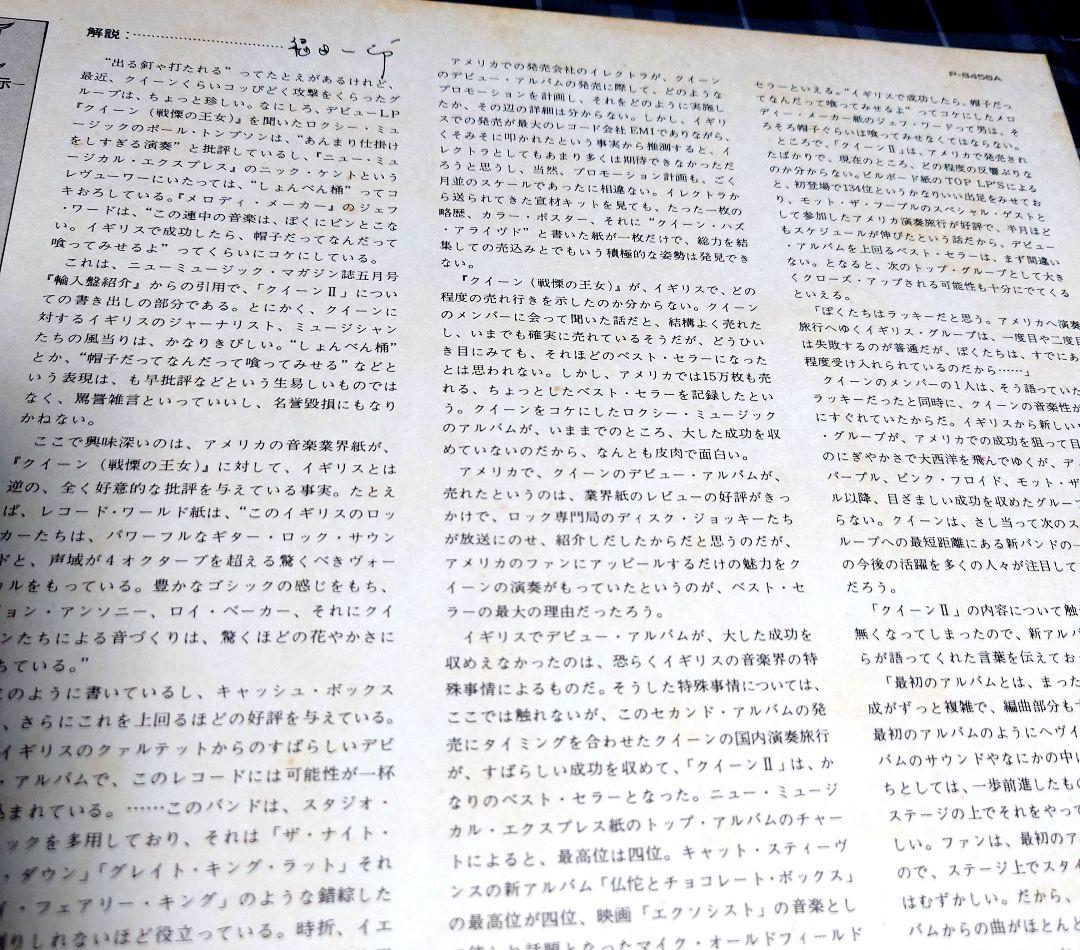 解説：……………………………福田一郎
P-8456A
“出る釘や打たれる”ってたとえがあるけれど、
最近、クイーンくらいコッぴどく攻撃をくらったグ
ループは、ちょっと珍しい。なにしろ、デビューLP
『クイーン（戦慄の王女）』を聞いたロクシー・ミュ
ージックのポール・トンプソンは、“あんまり仕掛け
をしすぎる演奏”と批評しているし、『ニュー・ミュ
ージカル・エクスプレス』のニック・ケントという
レヴューワーにいたっては、“しょんべん桶”ってコ
キおろしている。『メロディ・メーカー』のジェフ
・ワードは、“この連中の音楽は、ぼくにピンとこな
い。イギリスで成功したら、帽子だってなんだって
喰ってみせるよ”ってくらいにコケにしている。
これは、ニューミュージック・マガジン誌五月号
『輸入盤紹介』からの引用で、「クイーンⅡ」につい
ての書き出しの部分である。とにかく、クイーンに
対するイギリスのジャーナリスト、ミュージシャン
たちの風当りは、かなりきびしい。“しょんべん桶”
とか、“帽子だってなんだって喰ってみせる”などと
いう表現は、も早批評などという生易しいものでは
なく、罵詈雑言といっていいし、名誉毀損にもなり
かねない。
ここで興味深いのは、アメリカの音楽業界紙が、
『クイーン（戦慄の王女）』に対して、イギリスとは
逆の、全く好意的な批評を与えている事実。たとえ
ば、レコード・ワールド紙は、“このイギリスのロッ
カーたちは、パワーフルなギター・ロック・サウン
ドと、声域が4オクターブを超える驚くべきヴォー
カルをもっている。豊かなゴシックの感じをもち、
ジョン・アンソニー、ロイ・ベーカー、それにクイ
ーンたちによる音づくりは、驚くほどの花やかさに
ちている。”
このように書いているし、キャッシュ・ボックス
、さらにこれを上回るほどの好評を与えている。
イギリスのクァルテットからのすばらしいデビ
・アルバムで、このレコードには可能性が一杯
込まれている。……このバンドは、スタジオ・
ックを多用しており、それは「ザ・ナイト・
・ダウン」「グレイト・キング・ラット」それ
・フェアリー・キング」のような錯綜した
りしれないほど役立っている。時折、イエ
アメリカでの発売会社のイレクトラが、クイーン
のデビュー・アルバムの発売に際して、どのような
プロモーションを計画し、それをどのように実施し
たか、その辺の詳細は分からない。しかし、イギリ
スでの発売が最大のレコード会社EMIでありながら、
くそみそに叩かれたという事実から推測すると、イ
レクトラとしてもあまり多くは期待できなかっただ
ろうと思うし、当然、プロモーション計画も、ごく
月並のスケールであったに相違ない。イレクトラか
ら送られてきた宣材キットを見ても、たった一枚の
略歴、カラー・ポスター、それに“クイーン・ハズ
・アライヴド”と書いた紙が一枚だけで、総力を結
集しての売込みとでもいう積極的な姿勢は発見でき
ない。
『クイーン（戦慄の王女）』が、イギリスで、どの
程度の売れ行きを示したのか分からない。クイーン
のメンバーに会って聞いた話だと、結構よく売れた
し、いまでも確実に売れているそうだが、どうひい
き目にみても、それほどのベスト・セラーになった
とは思われない。しかし、アメリカでは15万枚も売
れる、ちょっとしたベスト・セラーを記録したとい
う。クイーンをコケにしたロクシー・ミュージック
のアルバムが、いままでのところ、大した成功を収
めていないのだから、なんとも皮肉で面白い。
アメリカで、クイーンのデビュー・アルバムが、
売れたというのは、業界紙のレビューの好評がきっ
かけで、ロック専門局のディスク・ジョッキーたち
が放送にのせ、紹介しだしたからだと思うのだが、
アメリカのファンにアッピールするだけの魅力をク
イーンの演奏がもっていたというのが、ベスト・セ
ラーの最大の理由だったろう。
イギリスでデビュー・アルバムが、大した成功を
収めえなかったのは、恐らくイギリスの音楽界の特
殊事情によるものだ。そうした特殊事情については、
ここでは触れないが、このセカンド・アルバムの発
売にタイミングを合わせたクイーンの国内演奏旅行
が、すばらしい成功を収めて、「クイーンⅡ」は、か
なりのベスト・セラーとなった。ニュー・ミュージ
カル・エクスプレス紙のトップ・アルバムのチャー
トによると、最高位は四位。キャット・スティーヴ
ンスの新アルバム「仏陀とチョコレート・ボックス」
の最高位が四位、映画「エクソシスト」の音楽とし
話題となったマイク・オールドフィールド
セラーといえる。“イギリスで成功したら、帽子だっ
てなんだって喰ってみせるよ”ってコケにしたメロ
ディー・メーカー紙のジェフ・ワードって男は、そ
ろそろ帽子ぐらいは喰ってみせなくてはならない。
ところで、「クイーンⅡ」は、アメリカで発売され
たばかりで、現在のところ、どの程度の反響ぶりな
のか分からない。ビルボード紙のTOP LP'Sによる
と、初登場で134位というかなりいい出足をみせてお
り、モット・ザ・フープルのスペシャル・ゲストと
して参加したアメリカ演奏旅行が好評で、半月ほど
もスケジュールが伸びたという話だから、デビュー
・アルバムを上回るベスト・セラーは、まず間違い
ない。となると、次のトップ・グループとして大き
くクローズ・アップされる可能性も十分にでてくる
といえる。
「ぼくたちはラッキーだと思う。アメリカへ演奏
旅行へゆくイギリス・グループは、一度目や二度目
は失敗するのが普通だが、ぼくたちは、すでにあ
程度受け入れられているのだから……」
クイーンのメンバーの1人は、そう語っていた
ラッキーだったと同時に、クイーンの音楽性が
にすぐれていたからだ。イギリスから新しい
・グループが、アメリカでの成功を狙って目
のにぎやかさで大西洋を飛んでゆくが、デ
パープル、ピンク・フロイド、モット・ザ
ル以降、目ざましい成功を収めたグループ
らない。クイーンは、さし当って次のス
ループへの最短距離にある新バンドの一
の今後の活躍を多くの人々が注目して
だろう。
「クイーンⅡ」の内容について触
無くなってしまったので、新アルバ
らが語ってくれた言葉を伝えてお
「最初のアルバムとは、まった
成がずっと複雑で、編曲部分も
最初のアルバムのようにヘヴィ
バムのサウンドやなにかの中
ちとしては、一歩前進したもの
ステージの上でそれをやって
しい。ファンは、最初のア
ので、ステージ上でスタイ
はむずかしい。だから、
バムからの曲がほとん